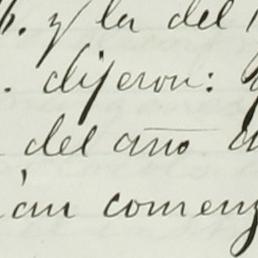 y la del
dijeron:
del año
án comenz